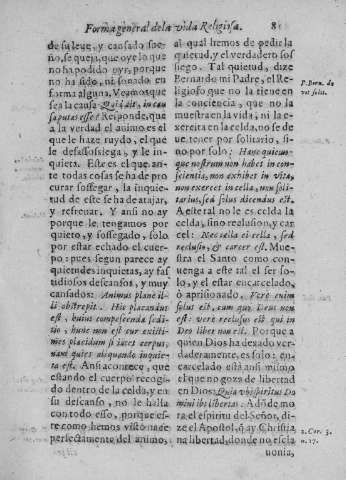 Forma general de la vida Religiosa. 8
de su leue, y cansado sue-
ño, se queja, que oye lo que
no ha podido oyr, porque
no ha sido, ni sonado en
forma alguna. Veamos que
sea la causa
a la verdad el animo es el
que le haze ruydo, el que
le desassossiega, y le in-
quieta. Este es el que an-
te todas cosas se ha de pro
curar sossegar, la inquie-
tud de este se ha de atajar,
y refrenar. Y ansi no ay
porque le tengamos por
quieto, y sossegado, solo
por estar echado el cuer-
po: pues segun parece ay
quietudes inquietas, ay fas
tidiosos descansos, y muy
cansados: Animus plane il-
li abstrepit. Hic placandus
est, huius compescenda sedi-
tio, hunc non est cur existi-
mes placidum si iacet corpus,
nam quies aliquando inquie-
ta est. Ansi acontece, que
estando el cuerpo recogi-
do dentro de la celda, y en
su descanso, no le halla
con todo esso, porque es-
te como hemos visto nace
perfectamente del animo,
al qual hemos de pedir la
quietud, y el verdadero sos
siego. Tal quietud, dize
Bernardo mi Padre, el Re-
ligioso que no la tiene en
la conciencia, que no la
muestra en la vida, ni la e-
xercita en la celda, no se de
ue tener por solitario, si-
no por solo: Hanc quicun-
que nostrum non habet in con-
scientia, non exhibet in vita,
non exercet in cella, non soli-
tarius, sed solus dicendus est.
A este tal no le es celda la
celda, sino reclusion, y car
cel: Nec cella ei cella, sed
reclusio, & carcer est. Mue-
stra el Santo como con-
uenga a este tal el ser so-
lo, y el estar encarcelado,
ò aprisionado. Verè enim
solus est, cum quo Deus non
est: verè reclusus est qui in
Deo liber non est. Porque a
quien Dios ha dexado ver-
daderamente, es solo: en-
carcelado està ansi mismo
el que no goza de libertad
en Dios: Quia vbi spiritus Do
mini ibi libertas: Adonde mo
ra el espiritu del Señor, di-
ze el Apostol, q̃ ay Christia
na libertad, donde no escla
uonia,
P. Bern. de
vit solit.
2. Cor. 3.
n. 17.